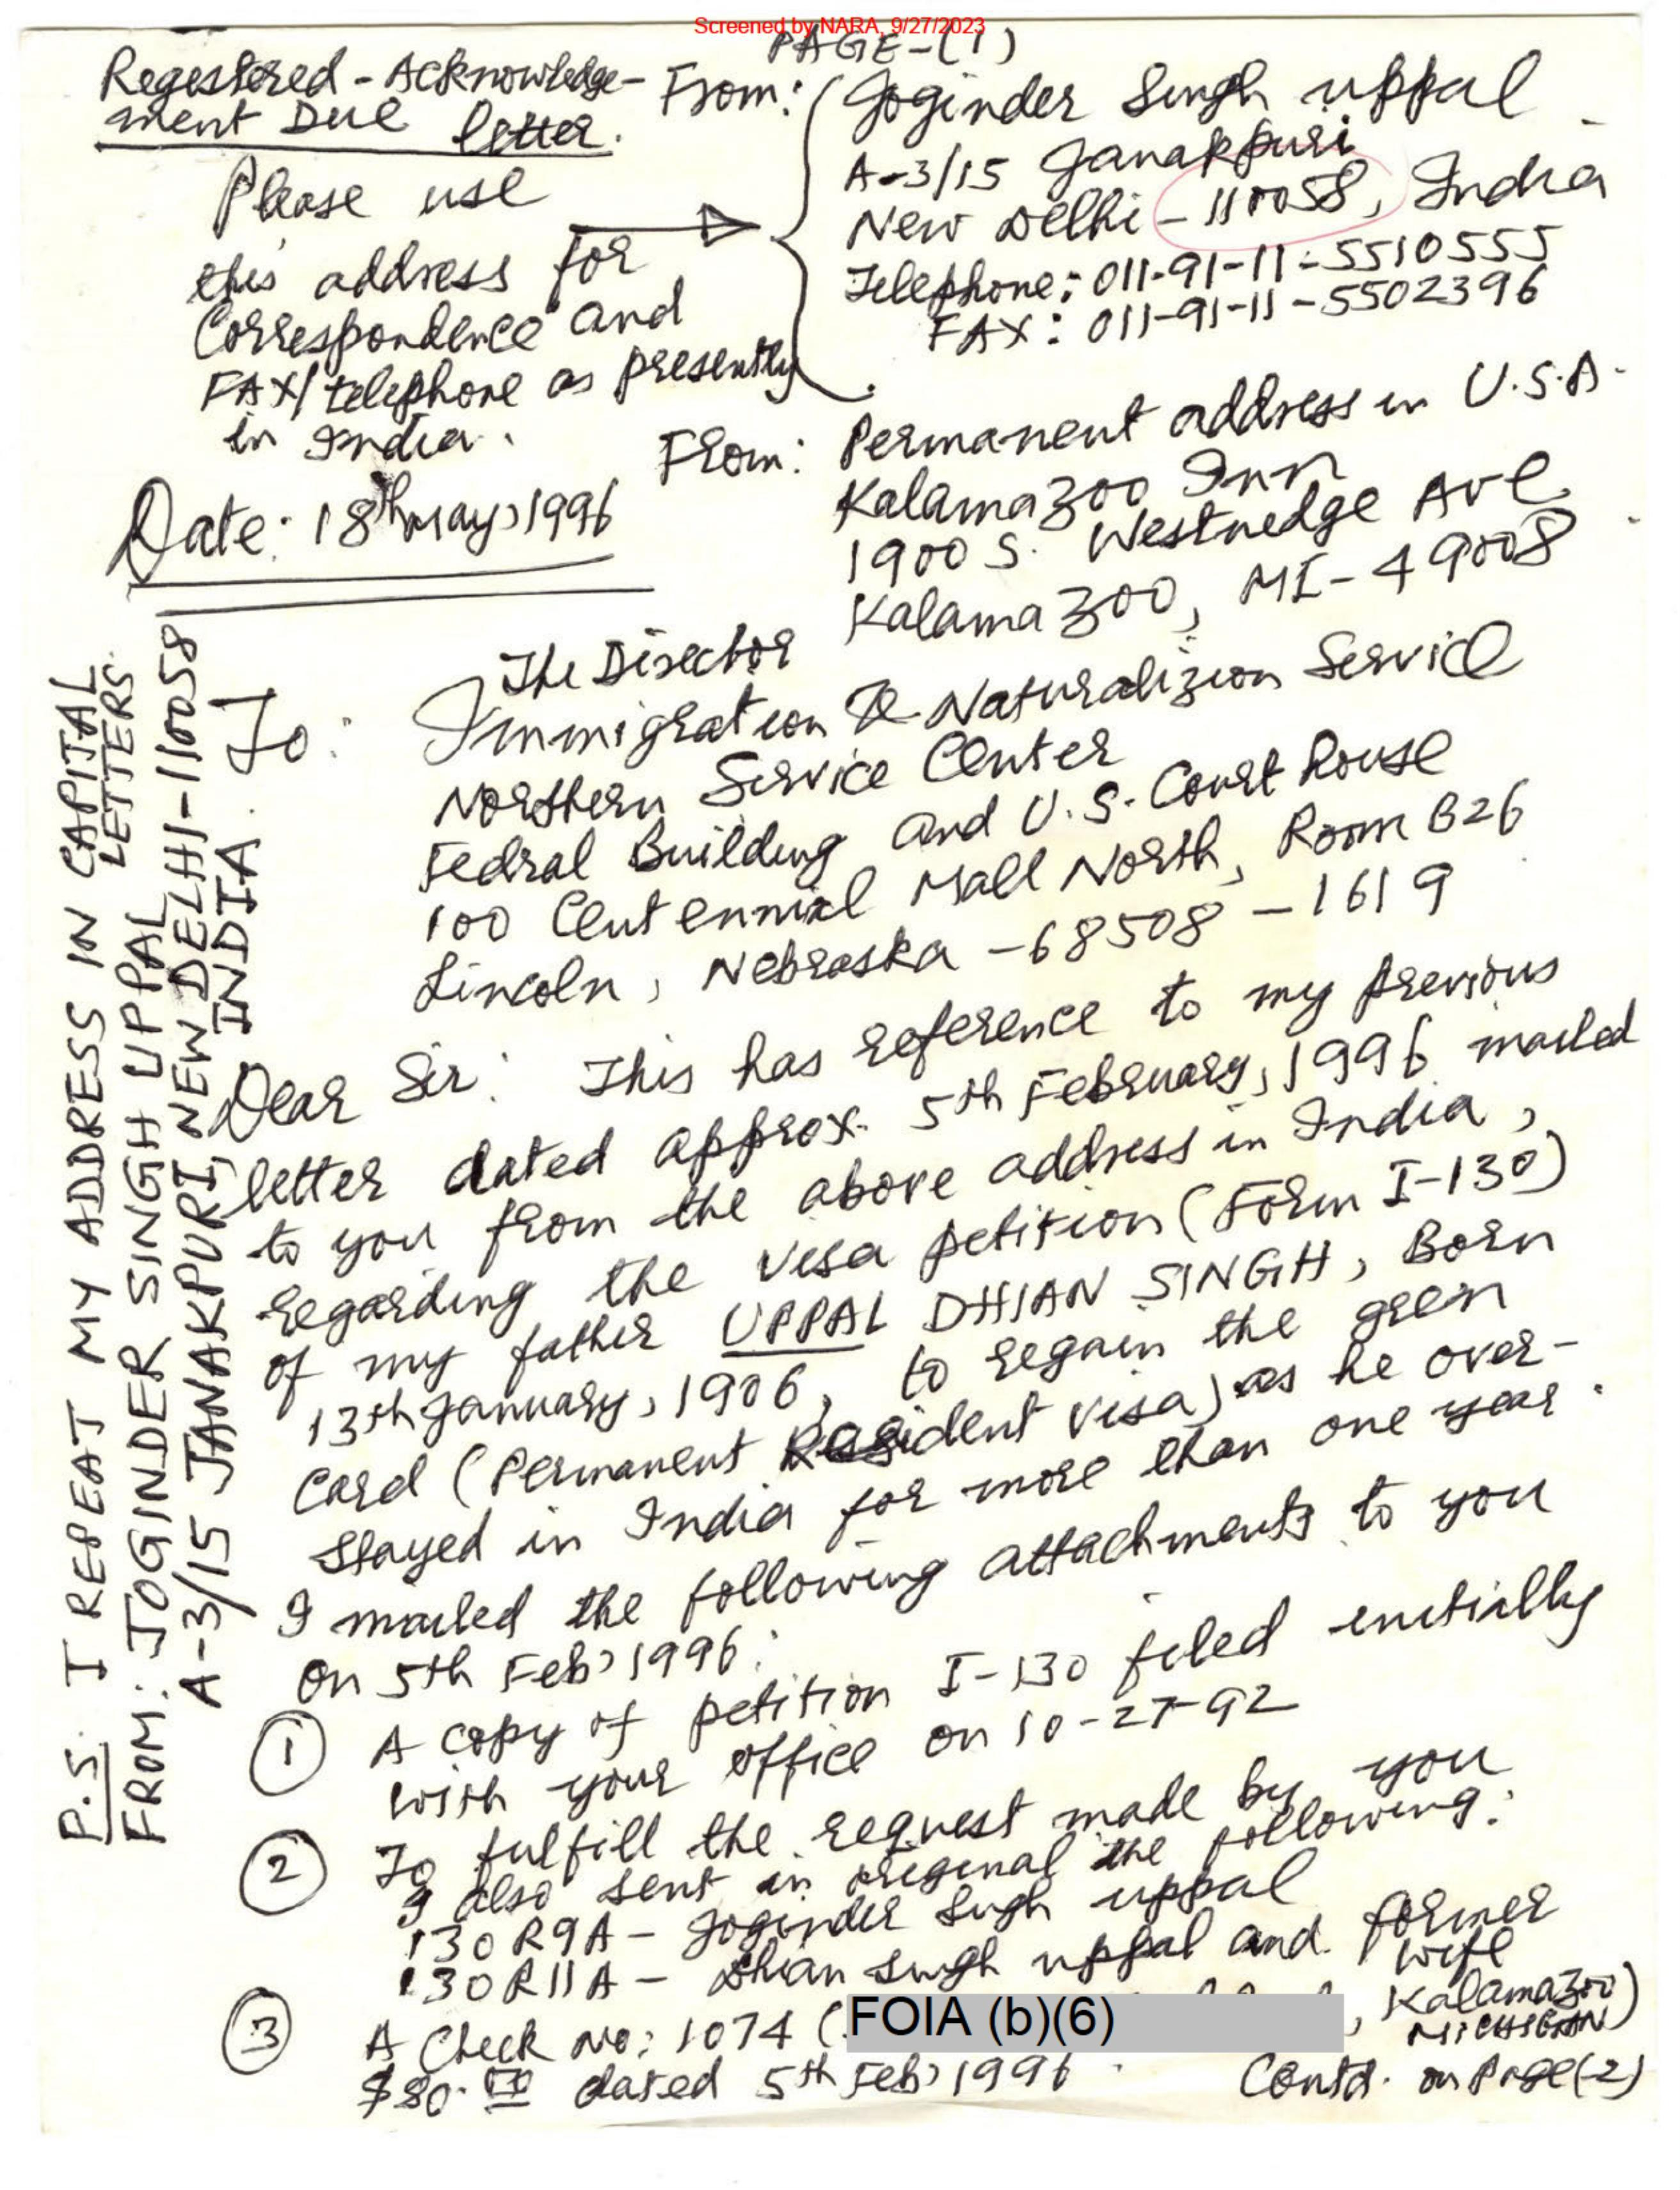 Screened by NARA, 9/27/2023
PAGE-(1)
Regestered - Acknowledge-
ment Due letter.
Please use
this address for
Correspondence and
FAX/telephone as presently
in India.
From: Joginder Singh Uppal
A-3/15 Janakpuri
New Delhi - 110058, India
Telephone: 011-91-11-5510555
FAX: 011-91-11-5502396
From: Permanent address in U.S.A.
Kalamazoo Inn
1900 S. Westnedge Ave
Kalamazoo, MI-49008
Date: 18th May, 1996
To: The Director
Immigration & Naturalizion Service
Northern Service Center
Fedral Building and U.S. Court house
100 Centennial Mall North, Room B26
Lincoln, Nebraska - 68508 - 1619
Dear Sir: This has reference to my previous
letter dated approx. 5th February, 1996 mailed
to you from the above address in India,
regarding the visa petition (Form I-130)
of my father UPPAL DHIAN SINGH, Born
13th January, 1906, to regain the green
Card (Permanent Resident Visa) as he over-
stayed in India for more than one year.
I mailed the following attachments to you
on 5th Feb, 1996:
1 A copy of petition I-130 filed initially
with your office on 10-27-92
2 To fulfill the request made by you
I also sent in original the following:
130 R9A - Joginder Singh Uppal
130 R11A - Dhian Singh Uppal and former
wife
3 A Check No: 1074 ( FOIA (b)(6) , Kalamazoo
MICHIGAN)
$80.00 dated 5th Feb, 1996.
Contd. on Page(-2)
P.S. I REPEAT MY ADDRESS IN CAPITAL
LETTERS.
FROM: JOGINDER SINGH UPPAL
A-3/15 JANAKPURI, NEW DELHI-110058
INDIA.